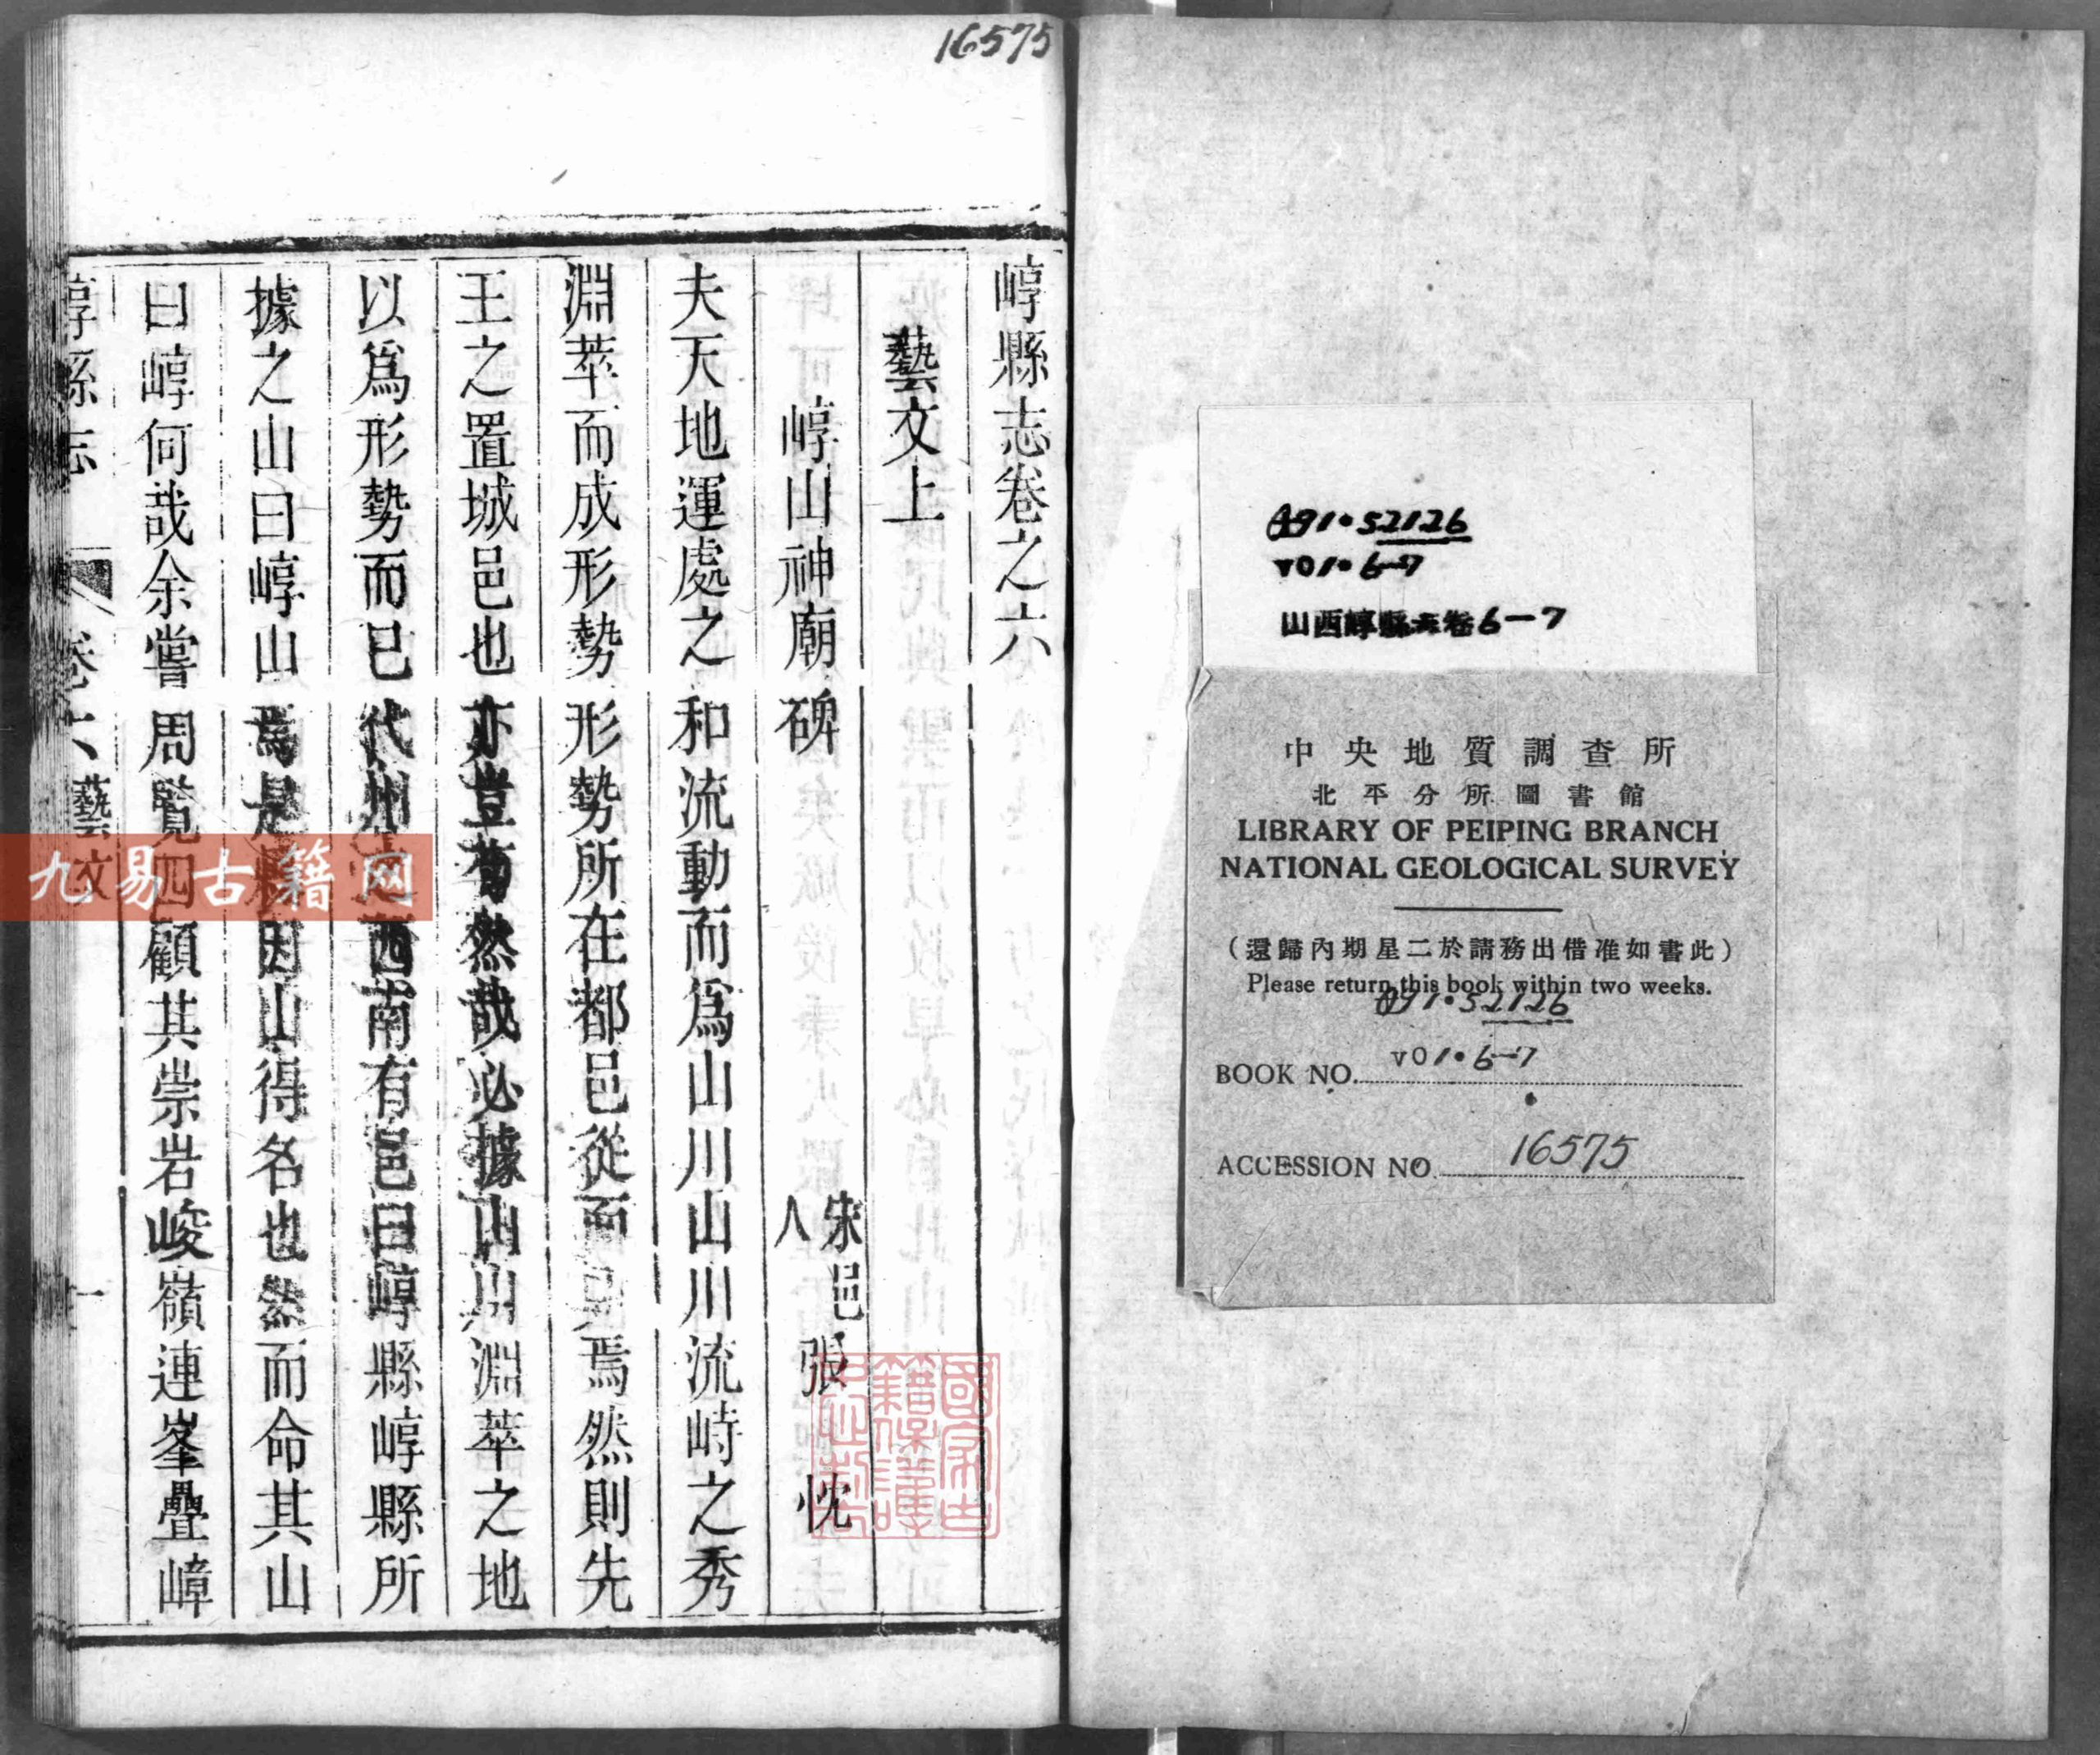 16575
崞縣志卷之六
藝文上
崞山神廟碑 宋邑人張忱
夫天地運處之和流動而爲山川山川流峙之秀
淵萃而成形勢形勢所在都邑從而焉然則先
王之置城邑也亦豈苟然哉必據山川淵萃之地
以爲形勢而已代州西南有邑曰崞縣崞縣所
據之山曰崞山爲是因山得名也然而命其山
曰崞何哉余嘗周覽四顧其崇岩峻嶺連峯疊嶂
崞縣志 卷六 藝文 一
九易古籍网
國家古籍保護
A91.52126
vol.6-7
山西崞縣志卷6-7
中央地質調查所
北平分所圖書館
LIBRARY OF PEIPING BRANCH
NATIONAL GEOLOGICAL SURVEY
(還歸內期星二於請務出借准如書此)
Please return this book within two weeks.
A91.52126
vol.6-7
BOOK NO.
ACCESSION NO. 16575